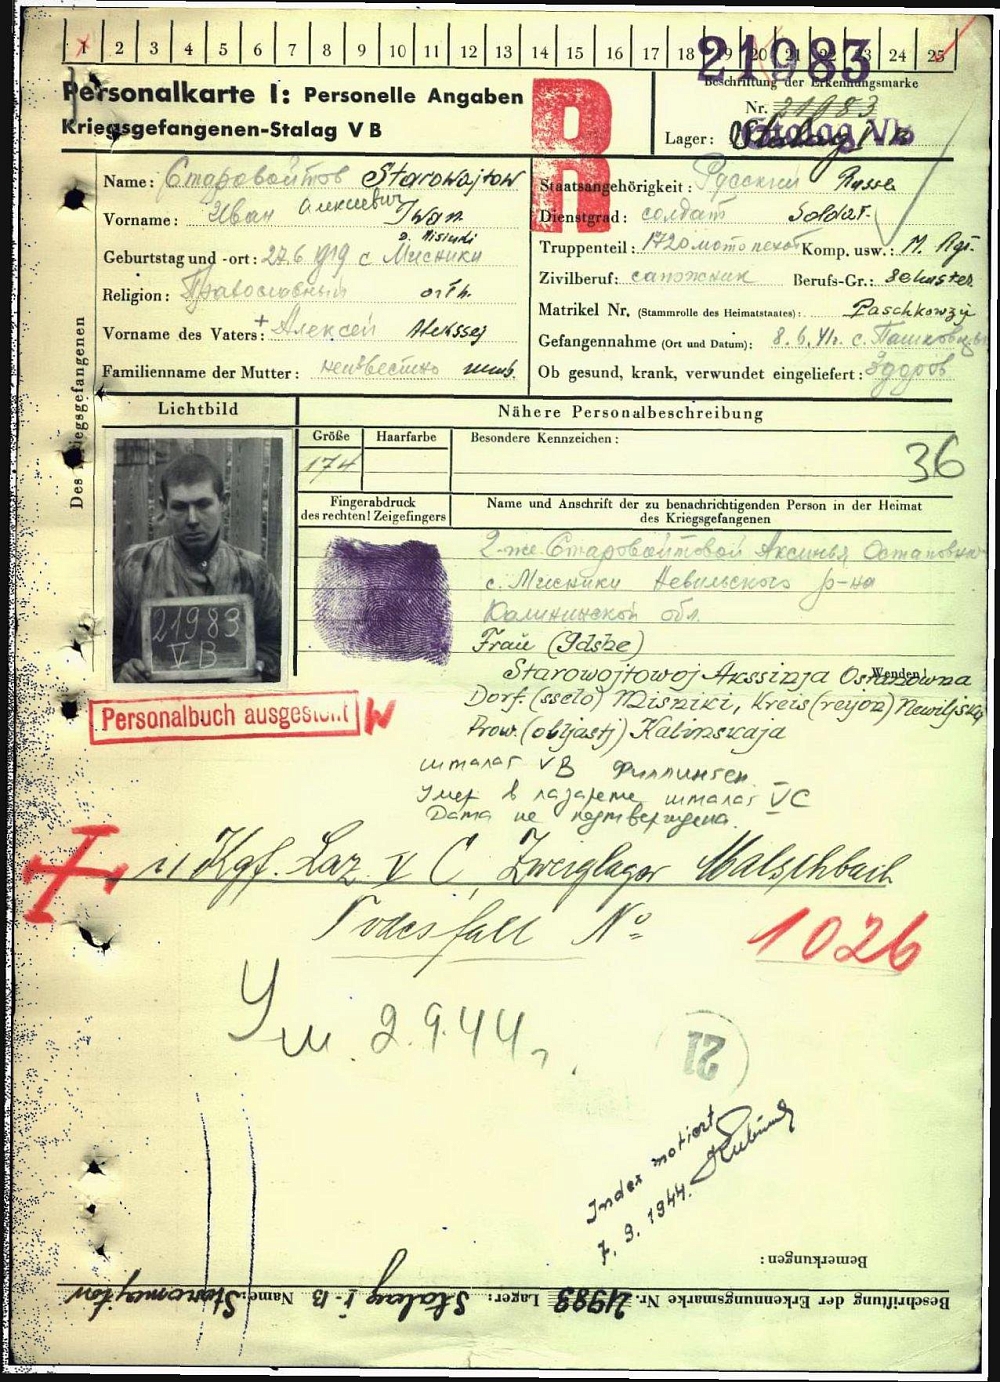 1 2 3 4 5 6 7 8 9 10 11 12 13 14 15 16 17 18 19 20 21 22 23 24 25
21983
Personalkarte I: Personelle Angaben
Kriegsgefangenen-Stalag V B
Beschriftung der Erkennungsmarke
Nr. 21983
Lager: Stalag VB
R
R
Des Kriegsgefangenen
Name: Старовойтов Starowojtow
Vorname: Иван Алексиевич Iwan
Geburtstag und -ort: 27.6.1919 с Мисники
Religion: Православный orth.
Vorname des Vaters: Алексей Alekssej
Familienname der Mutter: неизвестно unb.
Staatsangehörigkeit: Русский Russe
Dienstgrad: солдат Soldat.
Truppenteil: 1720 мотопехот Komp. usw.: M. Rgt.
Zivilberuf: сапожник Berufs-Gr.: Schuster
Matrikel Nr. (Stammrolle des Heimatstaates): Paschkowzy
Gefangennahme (Ort und Datum): 8.6.41г. с.
Ob gesund, krank, verwundet eingeliefert: Здоров
Lichtbild
Nähere Personalbeschreibung
Größe Haarfarbe Besondere Kennzeichen:
174
36
Fingerabdruck
des rechten! Zeigefingers
Name und Anschrift der zu benachrichtigenden Person in der Heimat
des Kriegsgefangenen
21983
V B
Г-же Старовойтовой Аксинья Остаповна
с. Мисники Невильского р-на
Калининской обл.
Frau (Gdshe)
Starowojtowoj Akssinja Ostapowna
Wenden!
Dorf. (sselo) Misniki, Kreis (rejon) Newiljskij
Prow. (obljastj) Kalinskaja
Personalbuch ausgestellt
шталаг VB Филлинген
Умер в лазарете шталаг VC
Дата не подтверждена.
Kgf. Laz. V C, Zweiglager Malschbach
Todesfall No
1026
Ум. 2.9.44г.
21
Index notiert
7. 9. 1944.
Bemerkungen:
Beschriftung der Erkennungsmarke Nr. 21983 Lager: Stalag V-B Name: Starowojtow